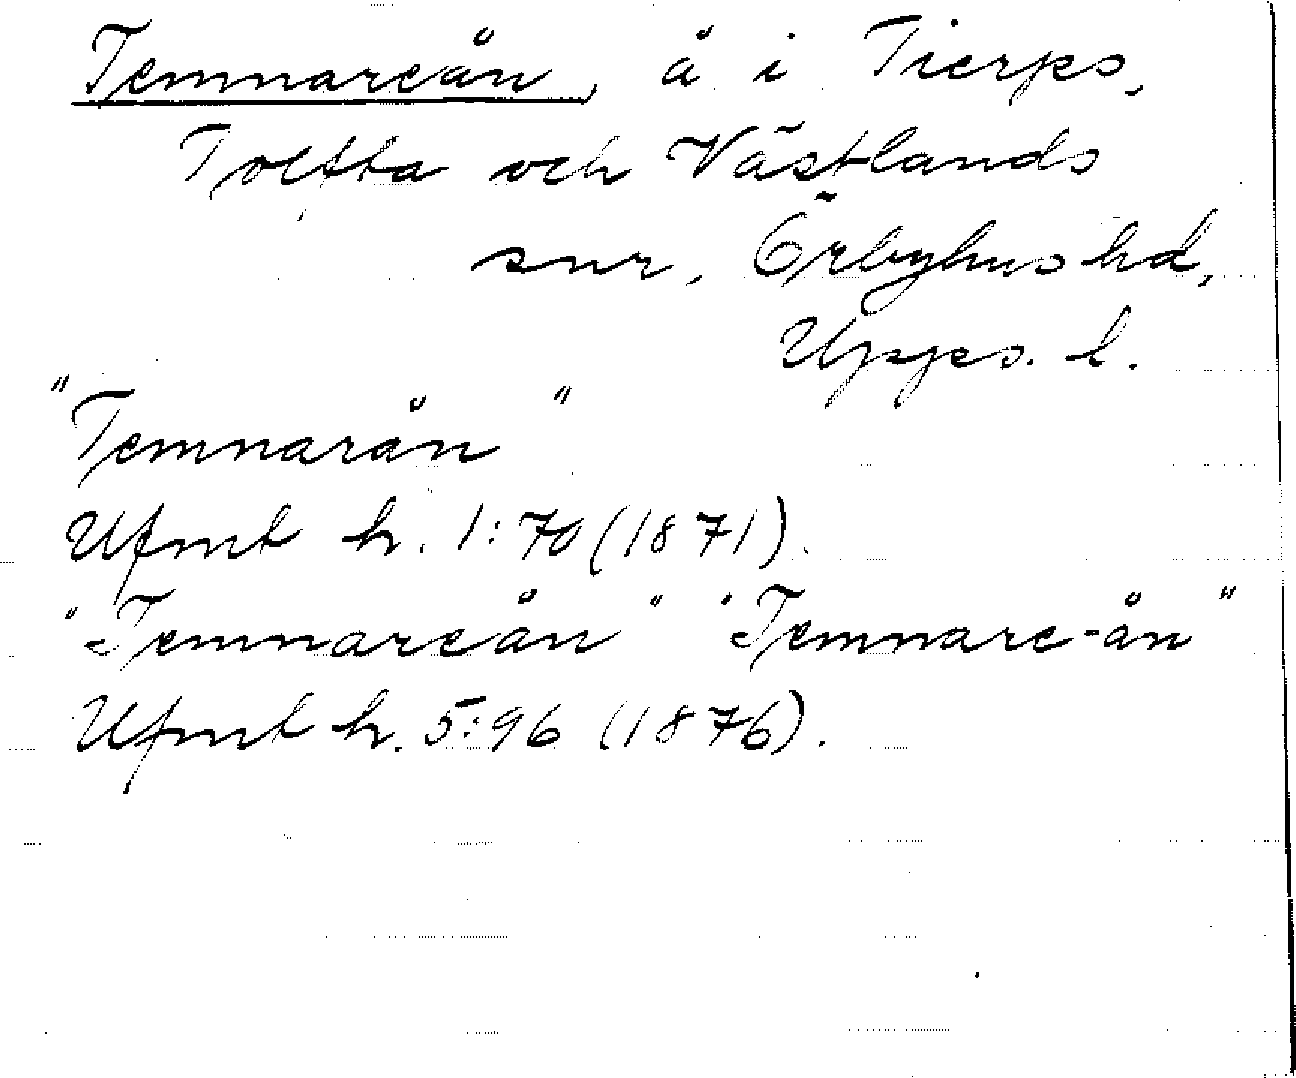 Temnareån, å i Tierps,
Tolfta och Västlands
snr, Örbyhus hd,
Upps. l.
"Temnarån"
Ufmt h. 1:70 (1871).
"Temnareån" "Temnare-ån"
Ufmt h. 5:96 (1876).